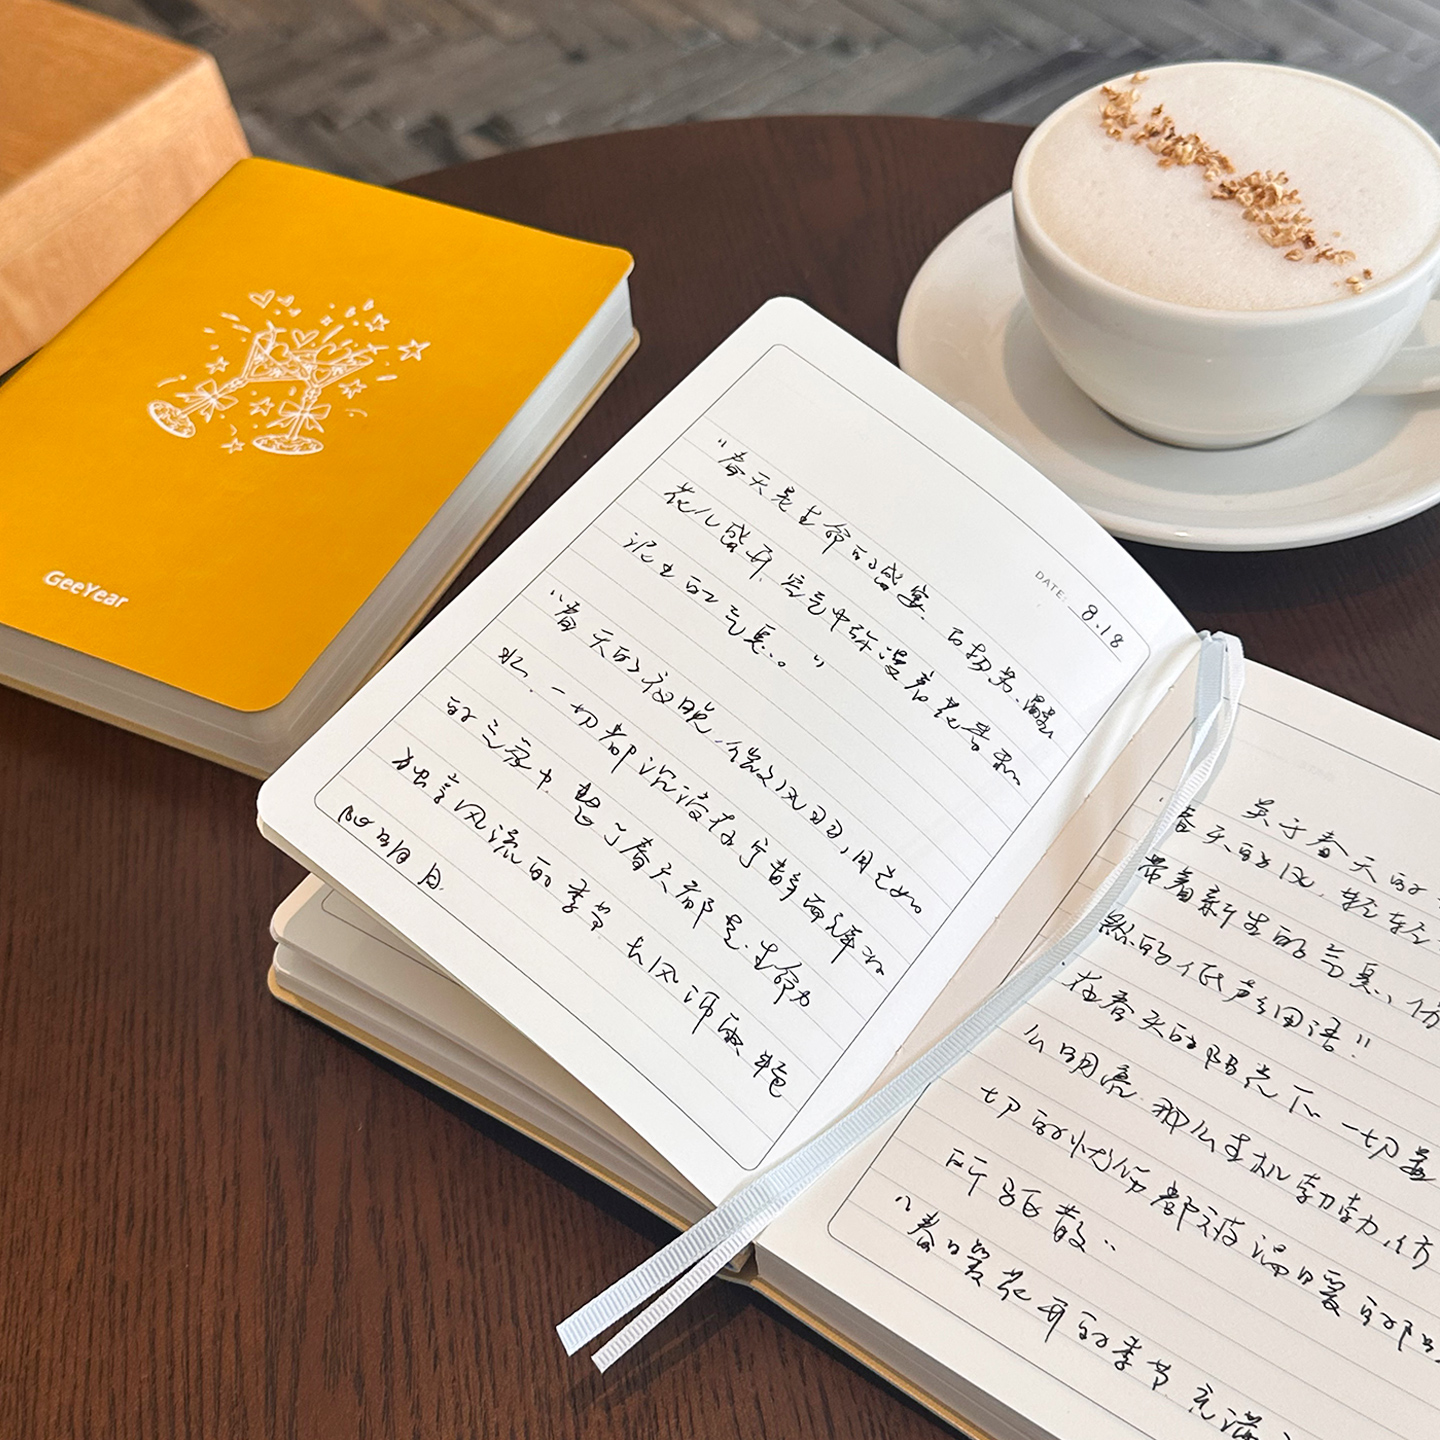 GeeYear
DATE: 8.18
"春天是生命的盛宴、百扬芳、
花儿盛开，空气中弥漫着花香和
泥土的气息。"
"春天的夜晚，微风习习，月光如
水，一切都沉浸在宁静而祥和
的之夜中 想了春天都是生命力
风流的季节 大风
关于春天的
春天的风，轻轻
带着新生的气息、仿
然的低声细语"
在春天的阳光下 一切是
么明亮 那么生机勃勃，仿
切的忧伤都被温暖的阳
所驱散"
"春暖花开的季节 充满